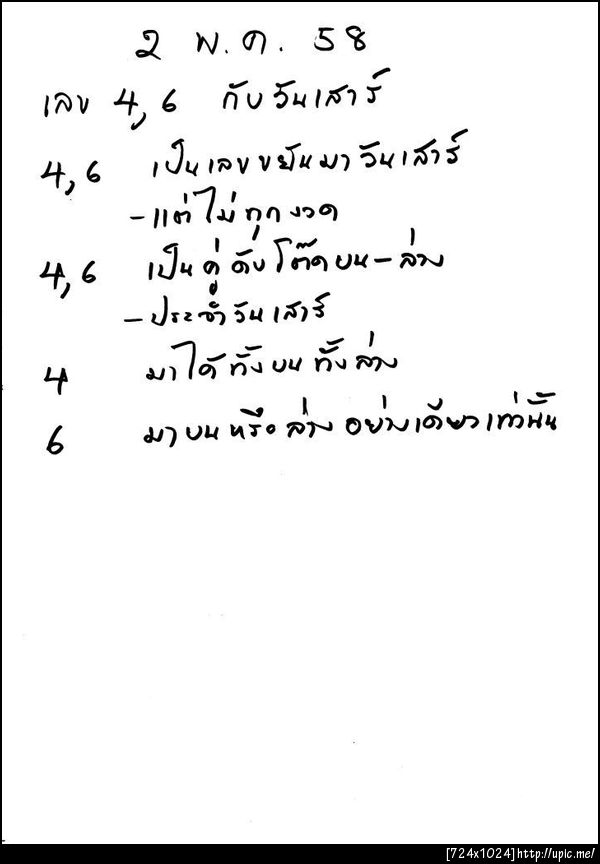 2 พ.ค. 58
เลข 4,6 กับวันเสาร์
4,6 เป็นเลขขยันมาวันเสาร์
-แต่ไม่ทุกงวด
4,6 เป็นคู่ดับโต๊ดบน-ล่าง
-ประจำวันเสาร์
4 มาได้ทั้งบนทั้งล่าง
6 มาบนหรือล่างอย่างเดียวเท่านั้น
[724x1024]http://upic.me/